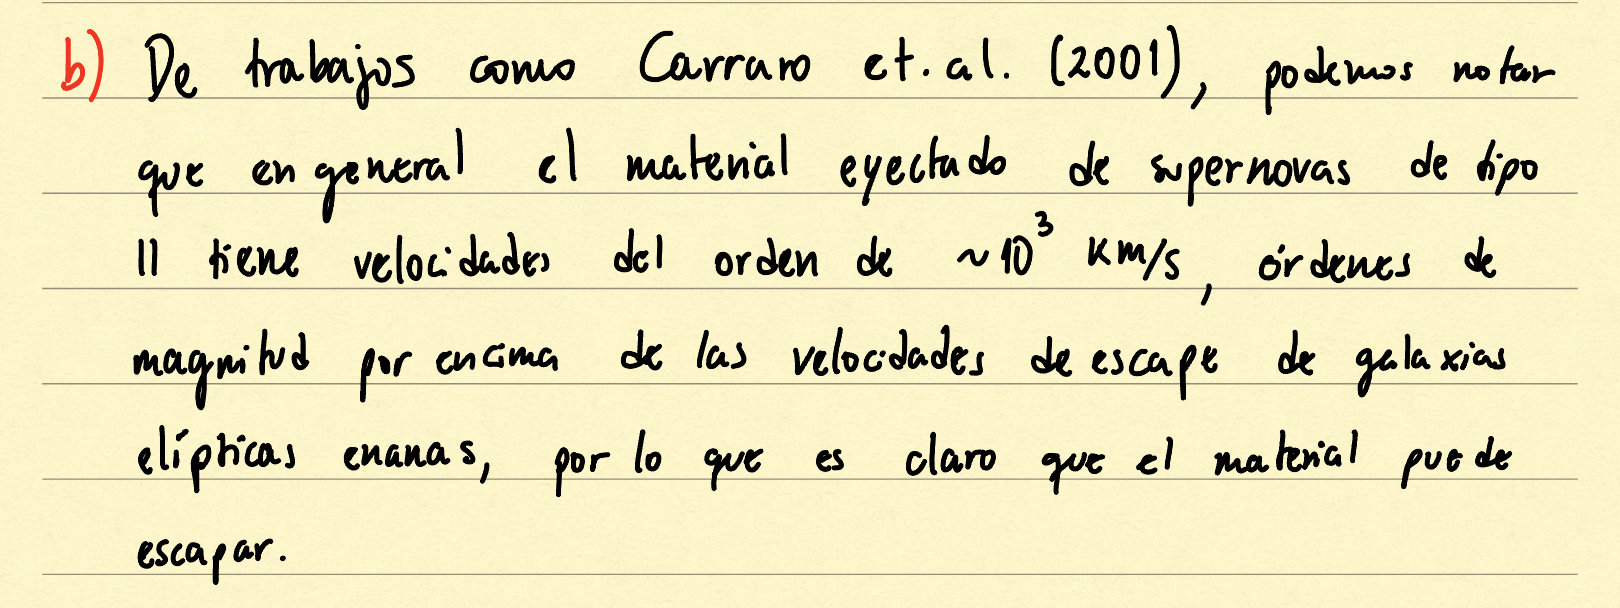 b) De trabajos como Carraro et. al. (2001), podemos notar
que en general el material eyectado de supernovas de tipo
II tiene velocidades del orden de ~10³ km/s, órdenes de
magnitud por encima de las velocidades de escape de galaxias
elípticas enanas, por lo que es claro que el material puede
escapar.